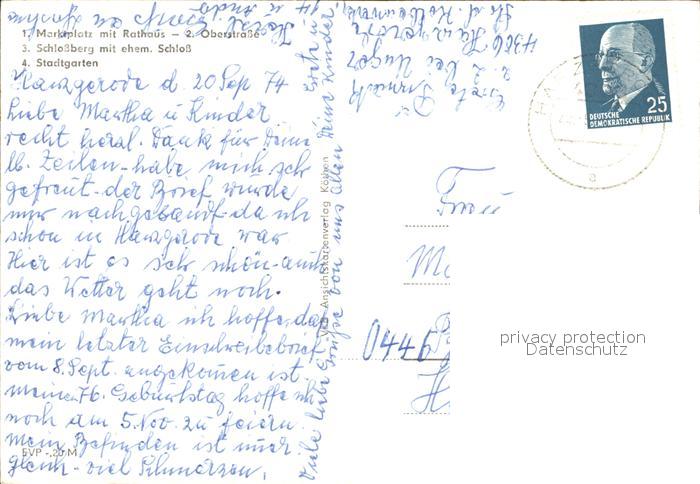 1. Marktplatz mit Rathaus – 2. Oberstraße
3. Schloßberg mit ehem. Schloß
4. Stadtgarten
Harzgerode d. 20 Sep 74
Liebe Martha u Kinder
recht herzl. Dank für Deine
lb. Zeilen - habe mich sehr
gefreut - der Brief wurde
mir nachgesandt - da ich
schon in Harzgerode war.
Hier ist es sehr schön - auch
das Wetter geht noch.
Liebe Martha ich hoffe, daß
mein letzter Einschreibebrief
vom 8. Sept. angekommen ist.
meinen 76. Geburtstag hoffe ich
noch am 5. Nov. zu feiern.
Mein Befinden ist immer
gleich - viel Schmerzen,
EVP -,20 M
Viele liebe Grüße von uns allen Deine Grete u Kinder
Ansichtskartenverlag Köthen
4306 Harzgerode
b. Unger
25
DEUTSCHE
DEMOKRATISCHE REPUBLIK
Frau
0446
privacy protection
Datenschutz